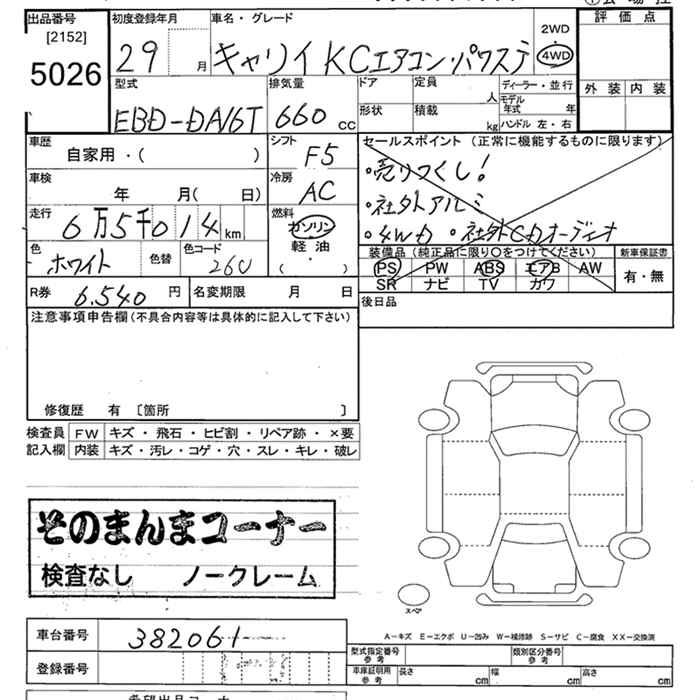 出品番号 初度登録年月 車名・グレード 2WD 評価点
[2152]
5026 29 月 キャリイ KCエアコン・パワステ 4WD
型式 排気量 ドア 定員 ディーラー・並行 外装 内装
EBD-DA16T 660 CC 人 モデル年式 年
形状 積載 kg ハンドル 左・右
車歴 シフト セールスポイント (正常に機能するものに限ります)
自家用・( ) F5 ・売りつくし!
車検 冷房
年 月( 日) AC ・社外アルミ
走行 燃料
6万5千014km ガソリン ・4WD ・社外CDオーディオ
軽油
( )
色 色替 色コード 装備品 (純正品に限り○をつけてください) 新車保証書
ホワイト 26U PS PW ABS エアB AW 有・無
SR ナビ TV カワ
R券 6.540 円 名変期限 月 日 後日品
注意事項申告欄(不具合内容等は具体的に記入して下さい)
修復歴 有 [箇所 ]
検査員 FW キズ・飛石・ヒビ割・リペア跡・×要
記入欄 内装 キズ・汚レ・コゲ・穴・スレ・キレ・破レ
そのまんまコーナー
検査なし ノークレーム
スペア
A-キズ E-エクボ U-凹み W-補修跡 S-サビ C-腐食 XX-交換済
車台番号 382061
型式指定番号 参考 類別区分番号 参考
登録番号 車庫証明用 参考 長さ cm 幅 cm 高さ cm